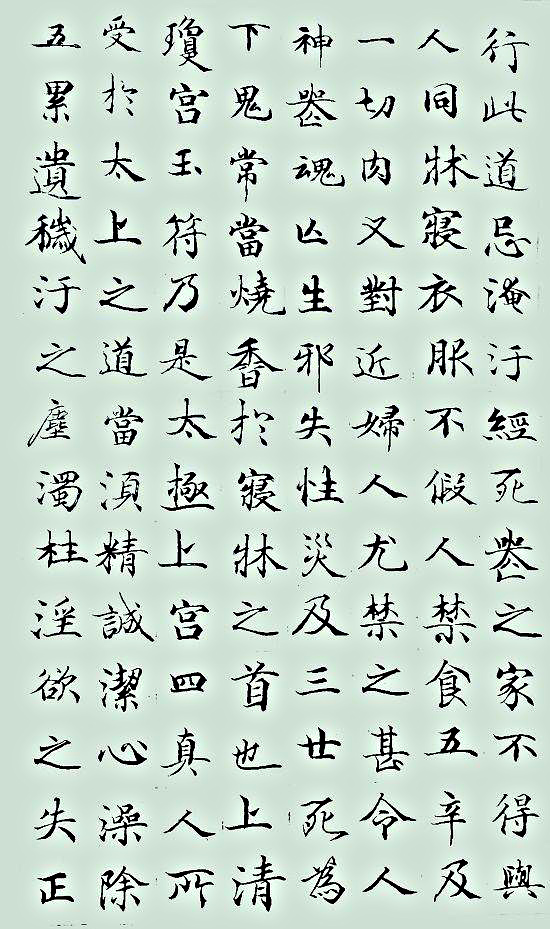 行此道忌淹汙經死䘮之家不得與
人同牀寢衣服不假人禁食五辛及
一切肉又對近婦人尤禁之甚令人
神䘮魂亾生邪失性災及三世死為
下鬼常當燒香於寢牀之首也上清
瓊宮玉符乃是太極上宮四真人所
受於太上之道當須精誠潔心澡除
五累遺穢汙之塵濁杜淫欲之失正